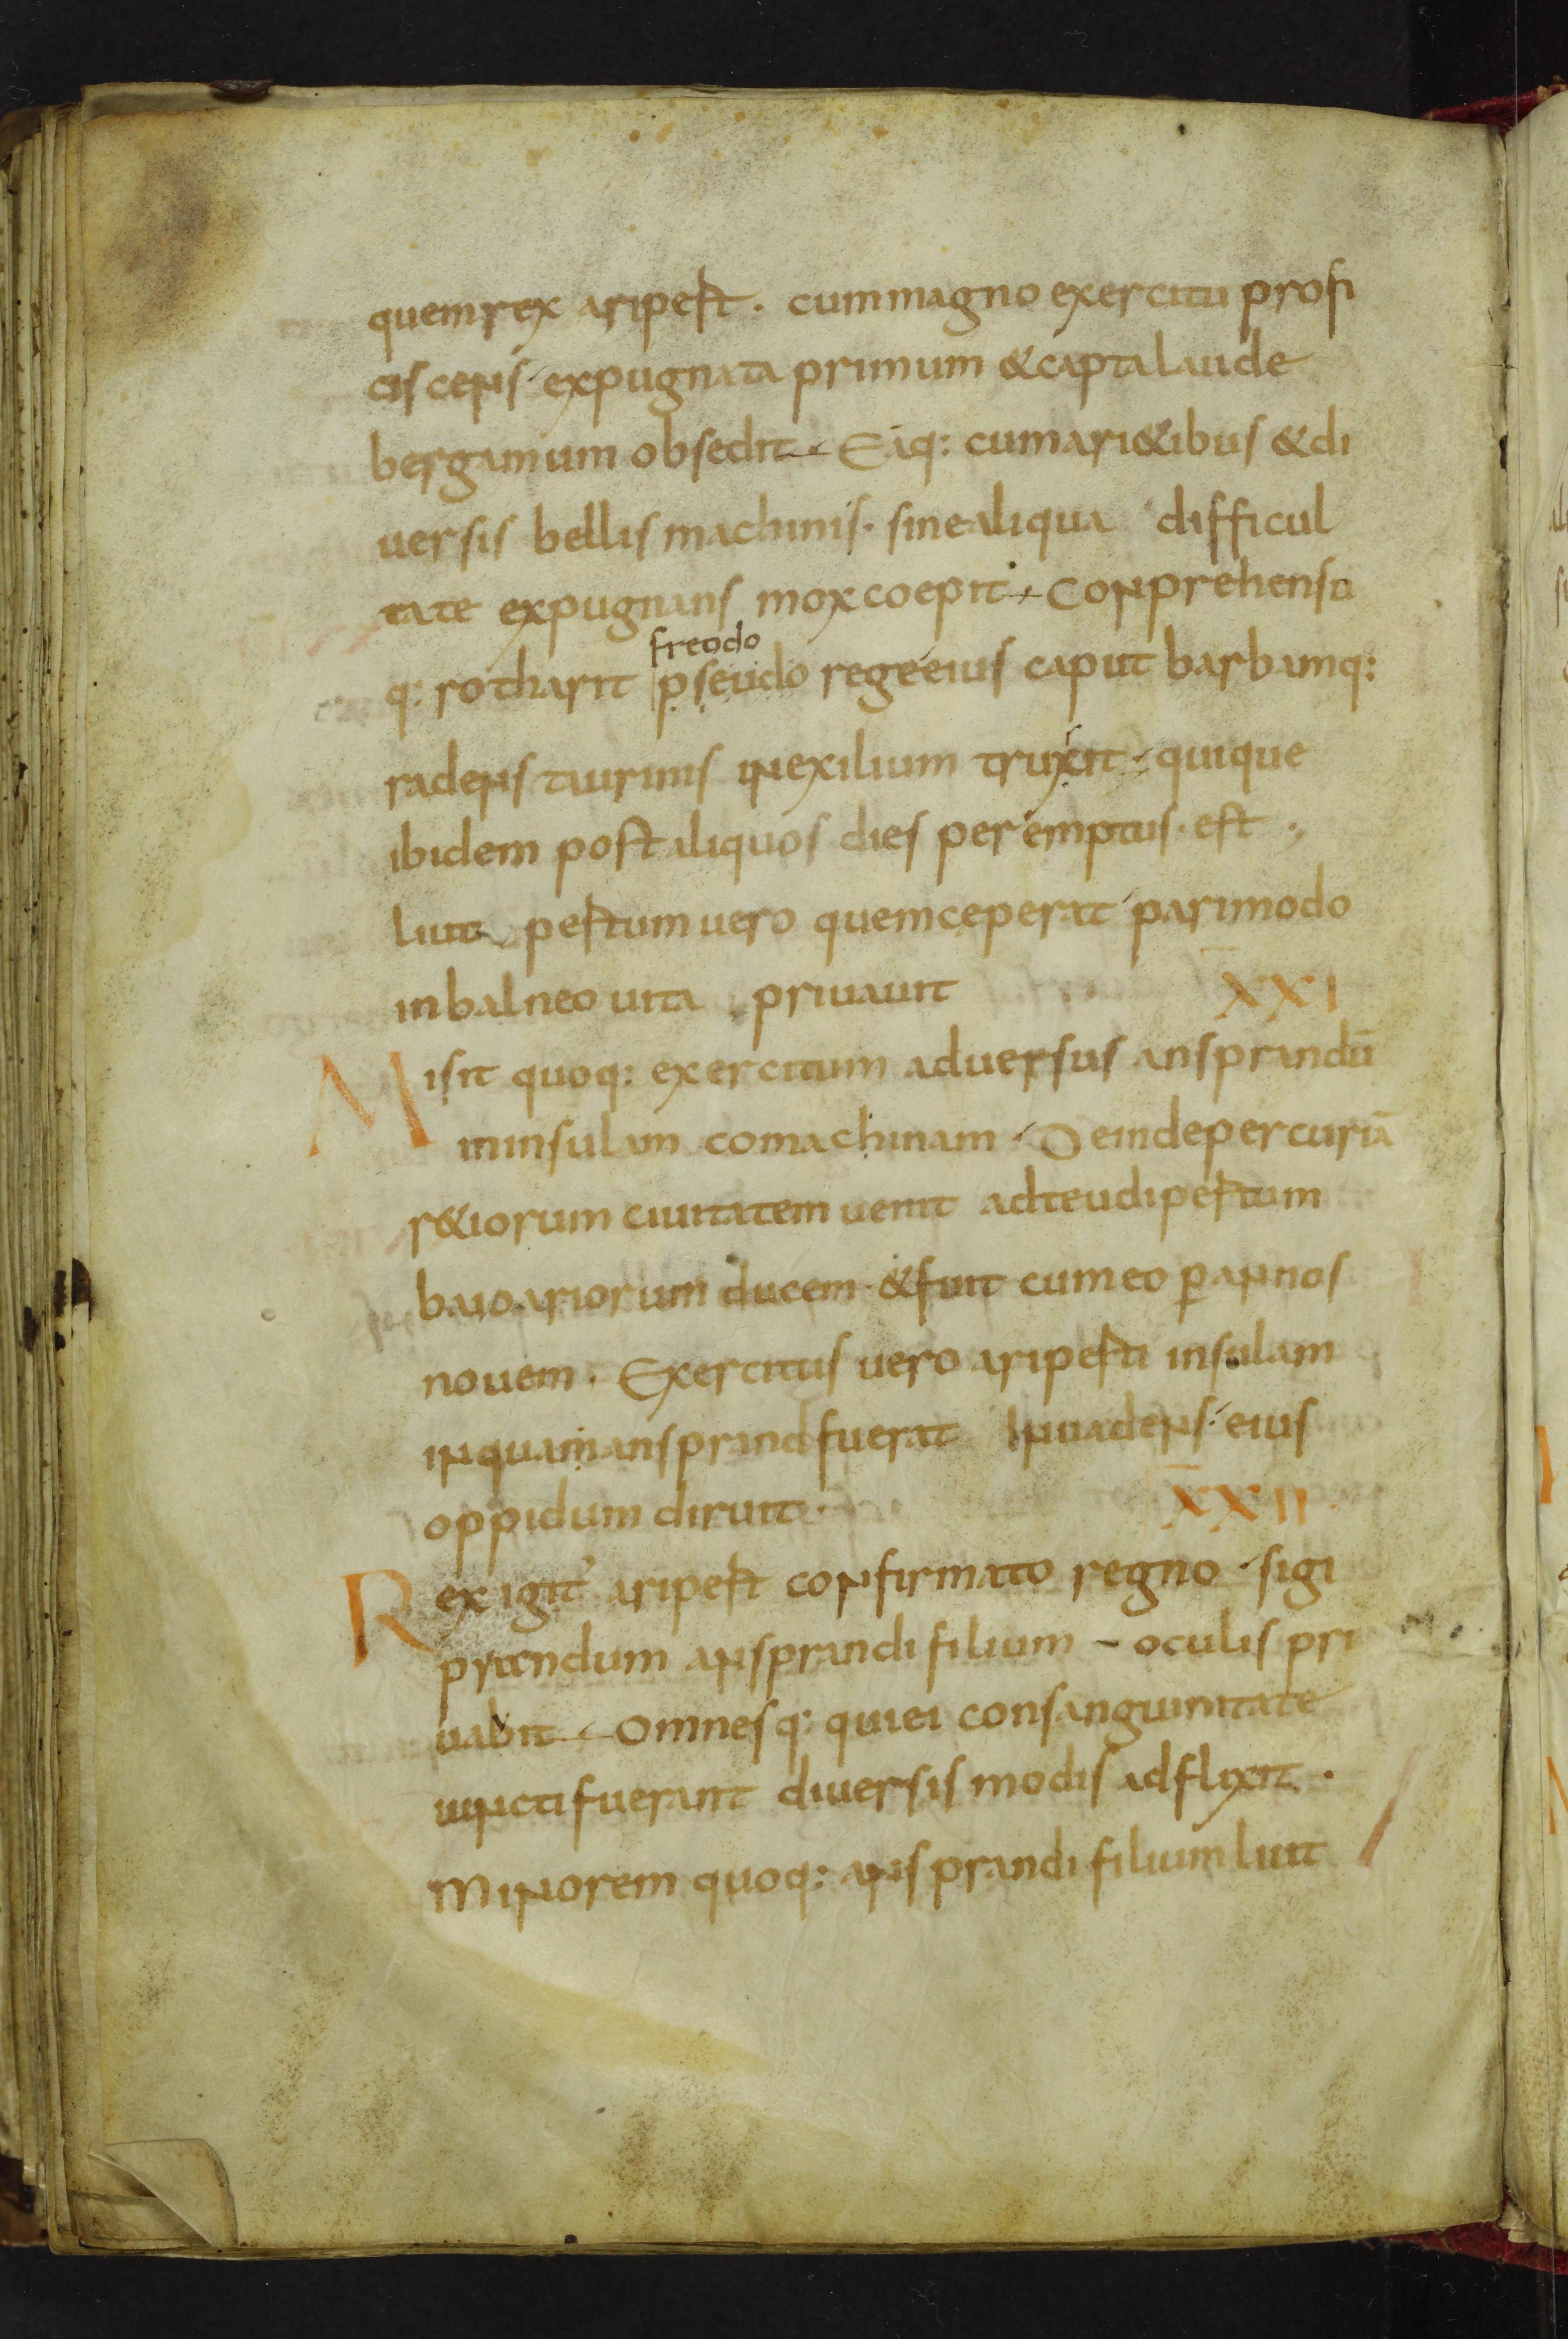 quem rex aripert. cum magno exercitu profi
ciscens expugnata primum & capta laude
bergamum obsedit. Eaq: cum ari&ibus & di
uersis bellis machinis. sine aliqua difficul
tate expugnans mox coepit. Conprehenso
freodo
q: rotharit pseudo rege eius caput barbamq:
radens taurinis in exilium truxit quique
ibidem post aliquos dies peremptus. est.
liut pertum uero quem ceperat pari modo
in balneo uita priuauit XXI
Misit quoq: exercitum aduersus ansprandū
in insulam comachinam. Deinde per curiā
r&iorum ciuitatem uenit ad teudipertum
baioariorum ducem. & fuit cum eo p̲ annos
nouem. Exercitus uero ariperti insulam
in quam ansprand fuerat Inuadens eius
oppidum diruit. XXII
Rex igit' aripert confirmato regno. sigi
prandum ansprandi filium oculis pri
uauit. Omnesq: qui ei consanguinitate
iuncti fuerant diuersis modis adflixit.
Minorem quoq: ansprandi filium liut